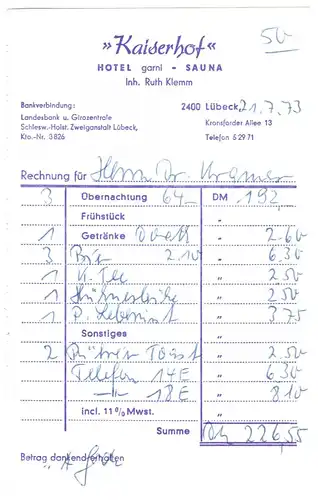 50
»Kaiserhof«
HOTEL garni - SAUNA
Inh. Ruth Klemm
Bankverbindung:
Landesbank u. Girozentrale
Schlesw.-Holst. Zweiganstalt Lübeck,
Kto.-Nr. 3826
2400 Lübeck, 21.7.73
Kronsforder Allee 13
Telefon 5 29 71
Rechnung für Herrn Dr. Kramer
3 Übernachtung 64.– DM 192
Frühstück
1 Getränke 2.60
3 Bier 2.10 6.30
1 K. Tee 2.50
1 2.50
1 P. 3.75
Sonstiges
2 Toast 2.50
Telefon 14E 6.30
–"– 18E 8.10
incl. 11% Mwst.
Summe DM 226,55
Betrag dankend erhalten